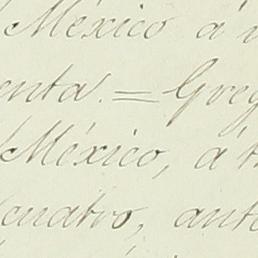 México á
enta. = Greg
México, á
cuatro, ante